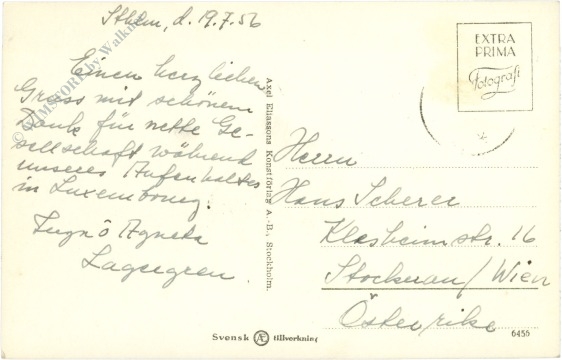 Sthlm, d. 19.7.56
Einen herzlichen
Gruss mit schönem
Dank für nette Ge-
sellschaft während
unseres Aufenhaltes
in Luxembourg.
Agneta
Lagergren.
Axel Eliassons Konstförlag A.-B., Stockholm.
EXTRA
PRIMA
Fotografi
Herrn
Hans Scherer
str. 16
Stockerau/Wien
Österrike
Svensk Æ tillverkning
6455